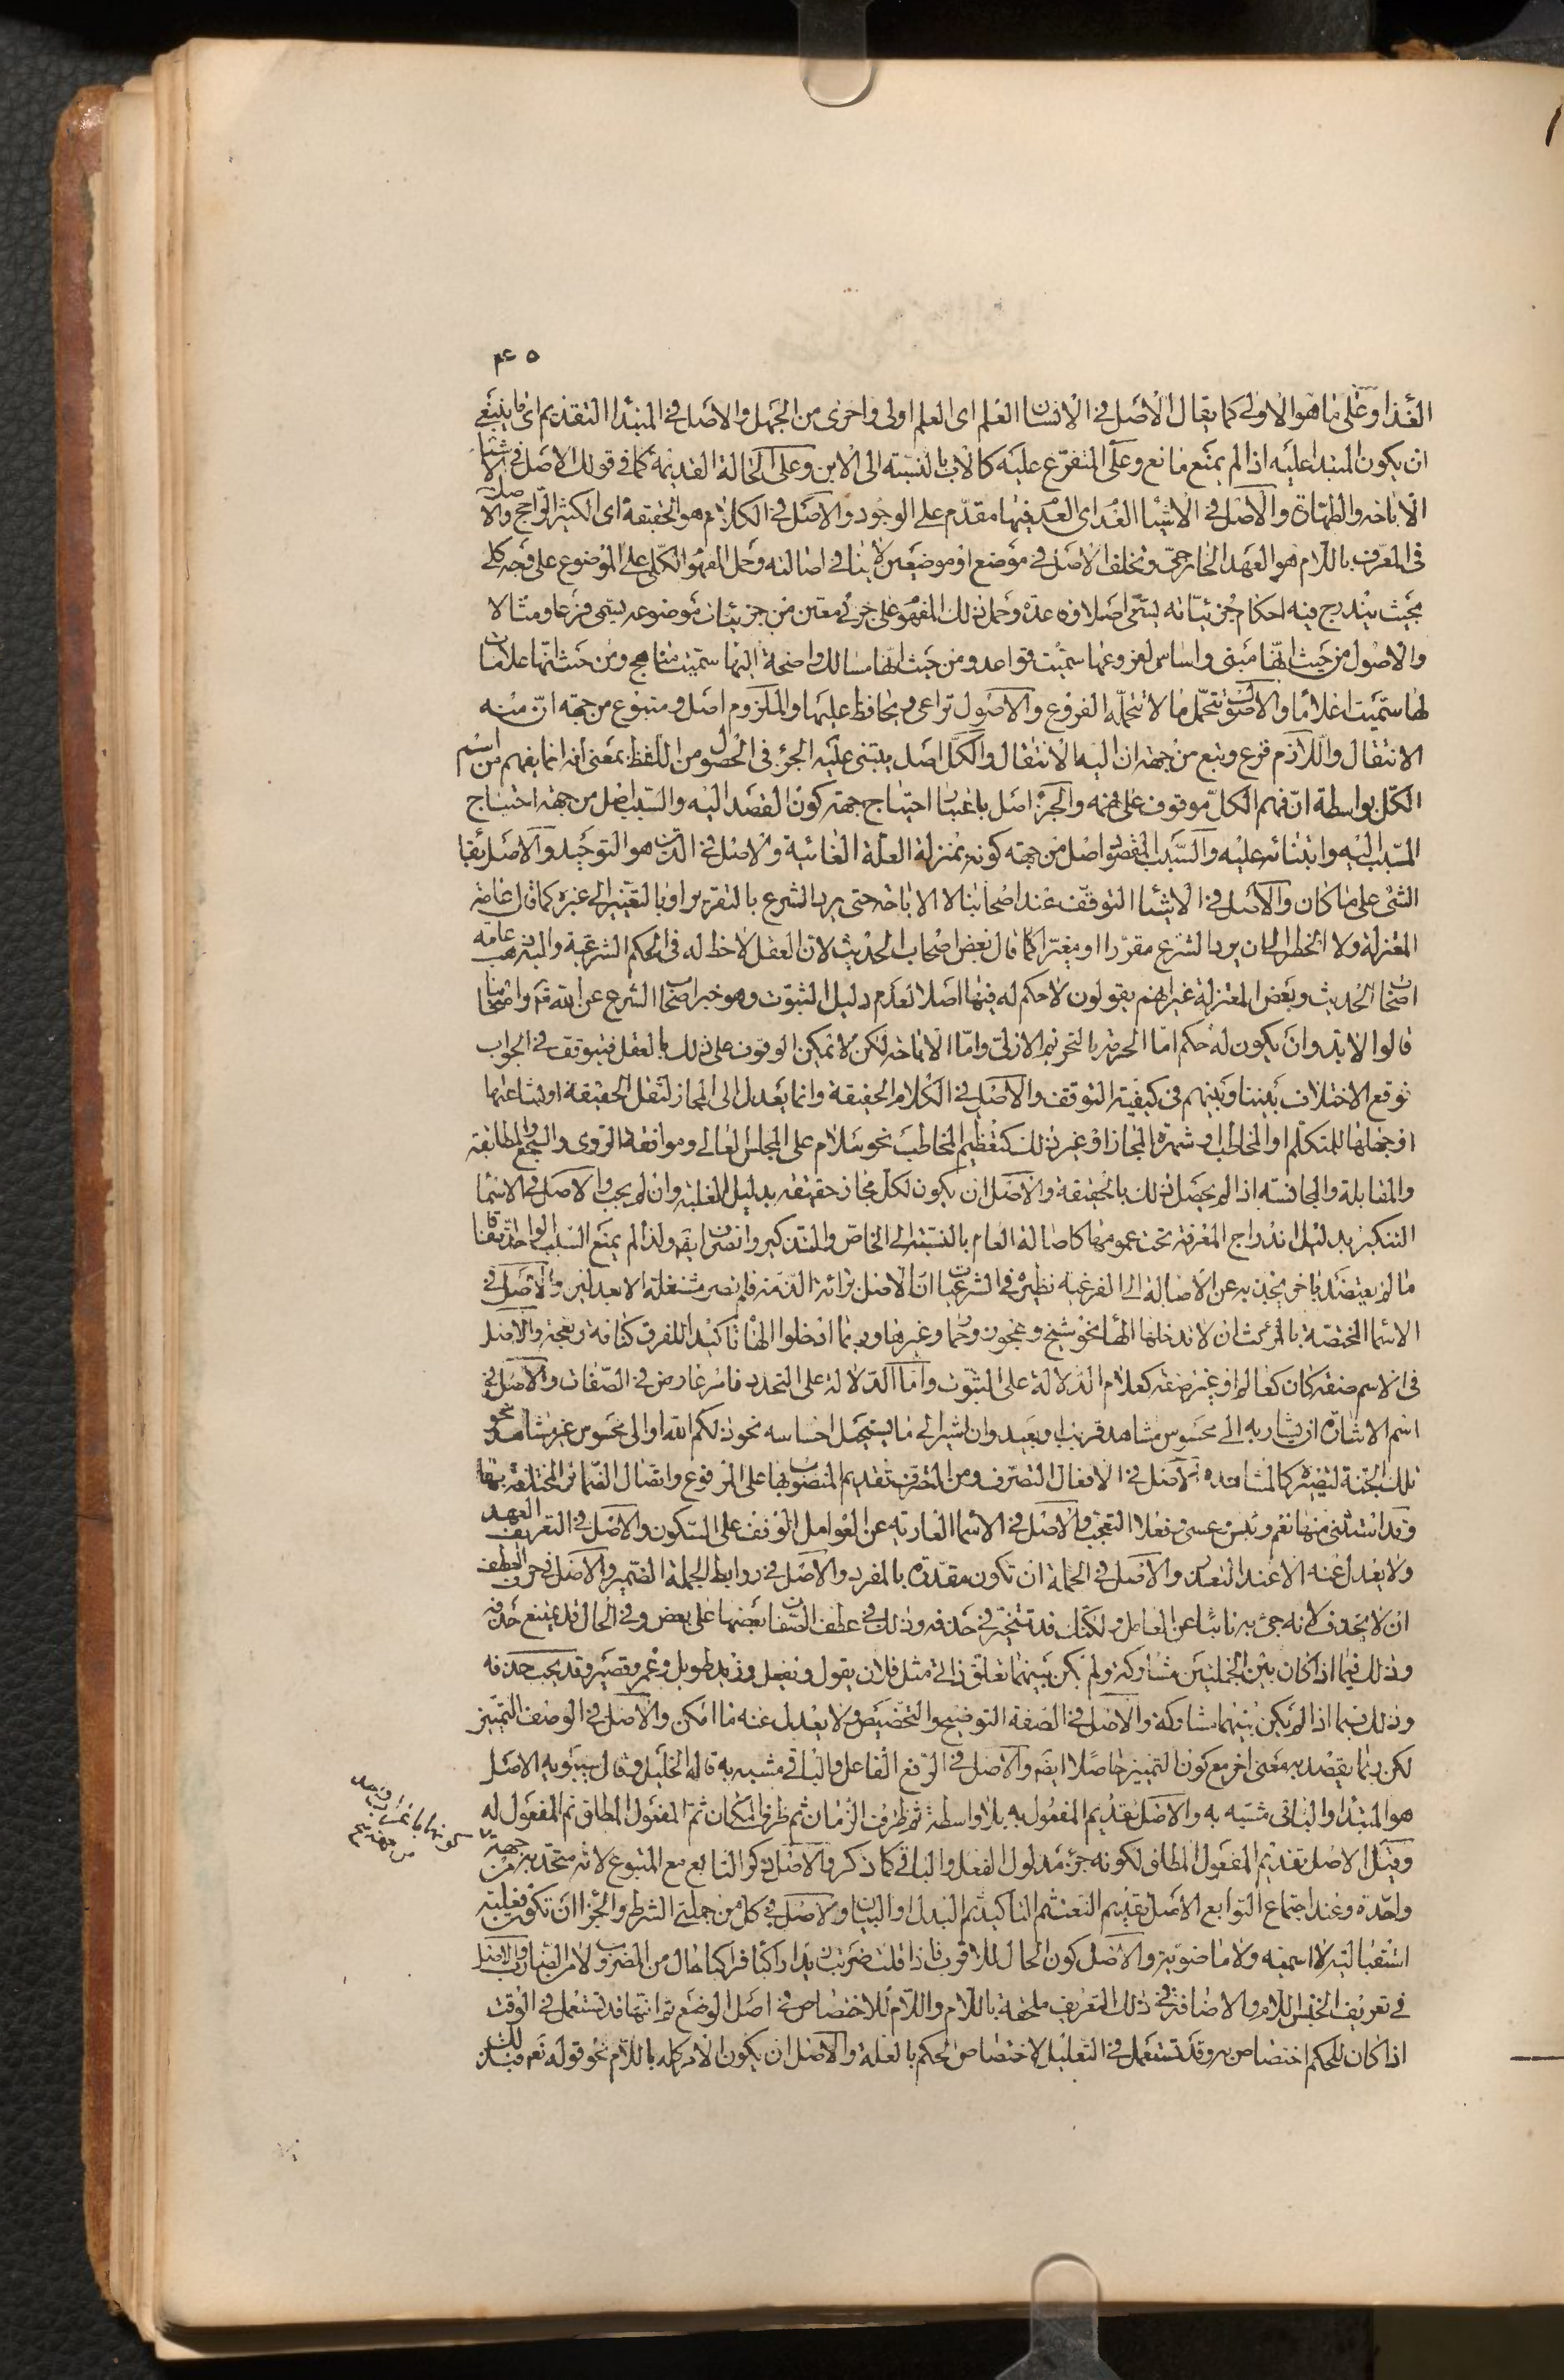 العذا وعلى ما هو الاولى كما يقال الاصل في الانسان العلم اى العلم اولى واحرى من الجهل والاصل في المبتدا التقديم اى ما ينبغي
ان يكون المبتدا عليه اذا لم يمنع مانع وعلى المتفرع عليه كالاب بالنسبة الى الابن وعلى الحالة القديمة كما في قولك الاصل في الاشيا
الاباحه والطهاة والاصل في الاشيا العدم اى العدم فيها مقدم على الوجود والاصل في الكلام هو الحقيقة اى الكثير الراجح والاصل
فى المعرف باللام هو العهد الخارجى وتخلف الاصل في موضع او موضعين لا ينافى اصالته وحمل المفهوم الكلى على الموضوع على وجه كلى
بحيث يندرج فيه احكام جزئياته يسمى اصلا وقاعدة وحمل ذلك المفهوم على جزئى معين من جزئيات موضوعه يسمى فرعا ومثالا
والاصول من حيث انها مبنى واساس لفروعها سميت قواعد ومن حيث انها مسالك واضحة اليها سميت مناهج ومن حيث انها علامات
لها سميت اعلاما والاصول تتحمل ما لا تتحمله الفروع والاصول تراعى ويحافظ عليها والملزوم اصل ومتبوع من جهة ان منه
الانتقال واللازم فرع وتبع من جهة ان اليه الانتقال والكل اصل يبتنى عليه الجزء فى الحصول من اللفظ بمعنى انه انما يفهم من اسم
الكل بواسطة ان فهم الكل موقوف على فهمه والجزء اصل باعتبار احتياج جهة كون القصد اليه والسبب اصل من جهة احتياج
المسبب اليه وابتنائه عليه والسبب المقصود اصل من جهة كونه بمنزلة العلة الغائية والاصل في الدين هو التوحيد والاصل بقا
الشئ على ما كان والاصل في الاشيا التوقف عند اصحابنا لا الاباحه حتى يرد الشرع بالتقرير او بالتغيير الى غيره كما قال عامة
المعتزلة ولا الحظر الى ان يرد الشرع مقررا او مغيرا كما قال بعض اصحاب الحديث لان العقل لا حظ له فى الحكم الشرعى واليه ذهب عامة
اصحاب الحديث وبعض المعتزلة غير انهم يقولون لا حكم له فيها اصلا لعدم دليل الثبوت وهو خبر اصحاب الشرع عن الله تعم واصحابنا
قالوا لا بد وان يكون له حكم اما الحرمة بالتحريم الازلى واما الاباحه لكن لا يمكن الوقوف على ذلك بالعقل فيتوقف في الجواب
فوقع الاختلاف بيننا وبينهم فى كيفية التوقف والاصل في الكلام الحقيقة وانما يعدل الى المجاز لثقل الحقيقة او بشاعتها
او جهلها للمتكلم او المخاطب او شهرة المجاز او غير ذلك كتعظيم المخاطب نحو سلام على المجلس العالى وموافقة الروى والسجع والمطابقة
والمقابلة والمجانسة اذا لم يحصل ذلك بالحقيقة والاصل ان يكون لكل مجاز حقيقة بدليل الغلبة وان لم يجب والاصل في الاسما
التنكير بدليل اندراج المعرفة تحت عمومها كاصالة العام بالنسبة الى الخاص والتذكير والصرف ايضا ولذا لم يمنع السبب الواحد اتفاقا
ما لم يعتضد باخر يجذبه عن الاصالة الى الفرعية نظيره في الشرعيات ان الاصل براءة الذمة فلم تصر مشتغلة الا بعدلين والاصل في
الاسما المختصة بالمؤنث ان لا تدخلها الهأ نحو شيخ وعجوز وحمار وغيرها وربما ادخلوا الهأ تاكيدا للفرق كناقة ونعجة والاصل
فى الاسم صفة كان كعالم او غير صفة كغلام الدلالة على الثبوت واما الدلالة على التجدد فامر عارض في الصفات والاصل في
اسم الاشارة ان يشار به الى محسوس مشاهد قريب او بعيد وان اشير الى ما يستحيل احساسه نحو ذلكم الله او الى محسوس غير مشاهد نحو
تلك الجنة لتصييره كالمشاهد والاصل في الافعال التصرف ومن التصرف تقديم المنصوب بها على المرفوع واتصال الضمائر المختلفة بها
وقد استثنى منها نعم وبئس وعسى وفعلا التعجب والاصل في الاسما العارية عن العوامل الوقف على السكون والاصل في التعريف العهد
ولا يعدل عنه الا عند التعذر والاصل في الجملة ان تكون مقدرة بالمفرد والاصل في روابط الجملة الضمير والاصل في حرف العطف
ان لا يحذف لانه جئ به نائبا عن العامل ولكنك قد تتخير في حذفه وذلك في عطف الصفات بعضها على بعض وفي الحال قد يمتنع حذفه
وذلك فيما اذا كان بين الجملتين مشاركة ولم يكن بينهما تعلق ذاتى مثل فلان يقول ويفعل وزيد طويل وعمرو قصير وقد يجب حذفه
وذلك فيما اذا لم يكن بينهما مشاركة والاصل في الصفة التوضيح والتخصيص ولا يعدل عنه ما امكن والاصل في الوصف التمييز
لكن ربما يقصد به معنى اخر مع كون التمييز حاصلا ايضا والاصل في الرفع الفاعل والباقى مشبه به قاله الخليل وقال سيبويه الاصل
هو المبتدا والباقى مشبه به والاصل تقديم المفعول به بلا واسطة ثم ظرف الزمان ثم ظرف المكان ثم المفعول المطلق ثم المفعول له
وقيل الاصل تقديم المفعول المطلق لكونه جزء مدلول الفعل والباقى كما ذكر والاصل ذكر التابع مع المتبوع لانه متحد به من جهة
واحدة وعند اجتماع التوابع الاصل تقديم النعت ثم التاكيد ثم البدل او البيان والاصل في كل من جملتى الشرط والجزا ان تكون فعلية
استقبالية لا اسمية ولا ماضوية والاصل كون الحال للاقرب فاذا قلت ضربت زيدا راكبا فراكبا حال من المضروب لا من الضارب والاصل
في تعريف الجنس اللام والاضافة في ذلك التعريف ملحقة باللام واللام للاختصاص في اصل الوضع ثم انها قد تستعمل في الوقت
اذا كان للحكم اختصاص به وقد تستعمل في التعليل لاختصاص الحكم بالعلة والاصل ان يكون الامر كله باللام نحو قوله تعم فبذلك